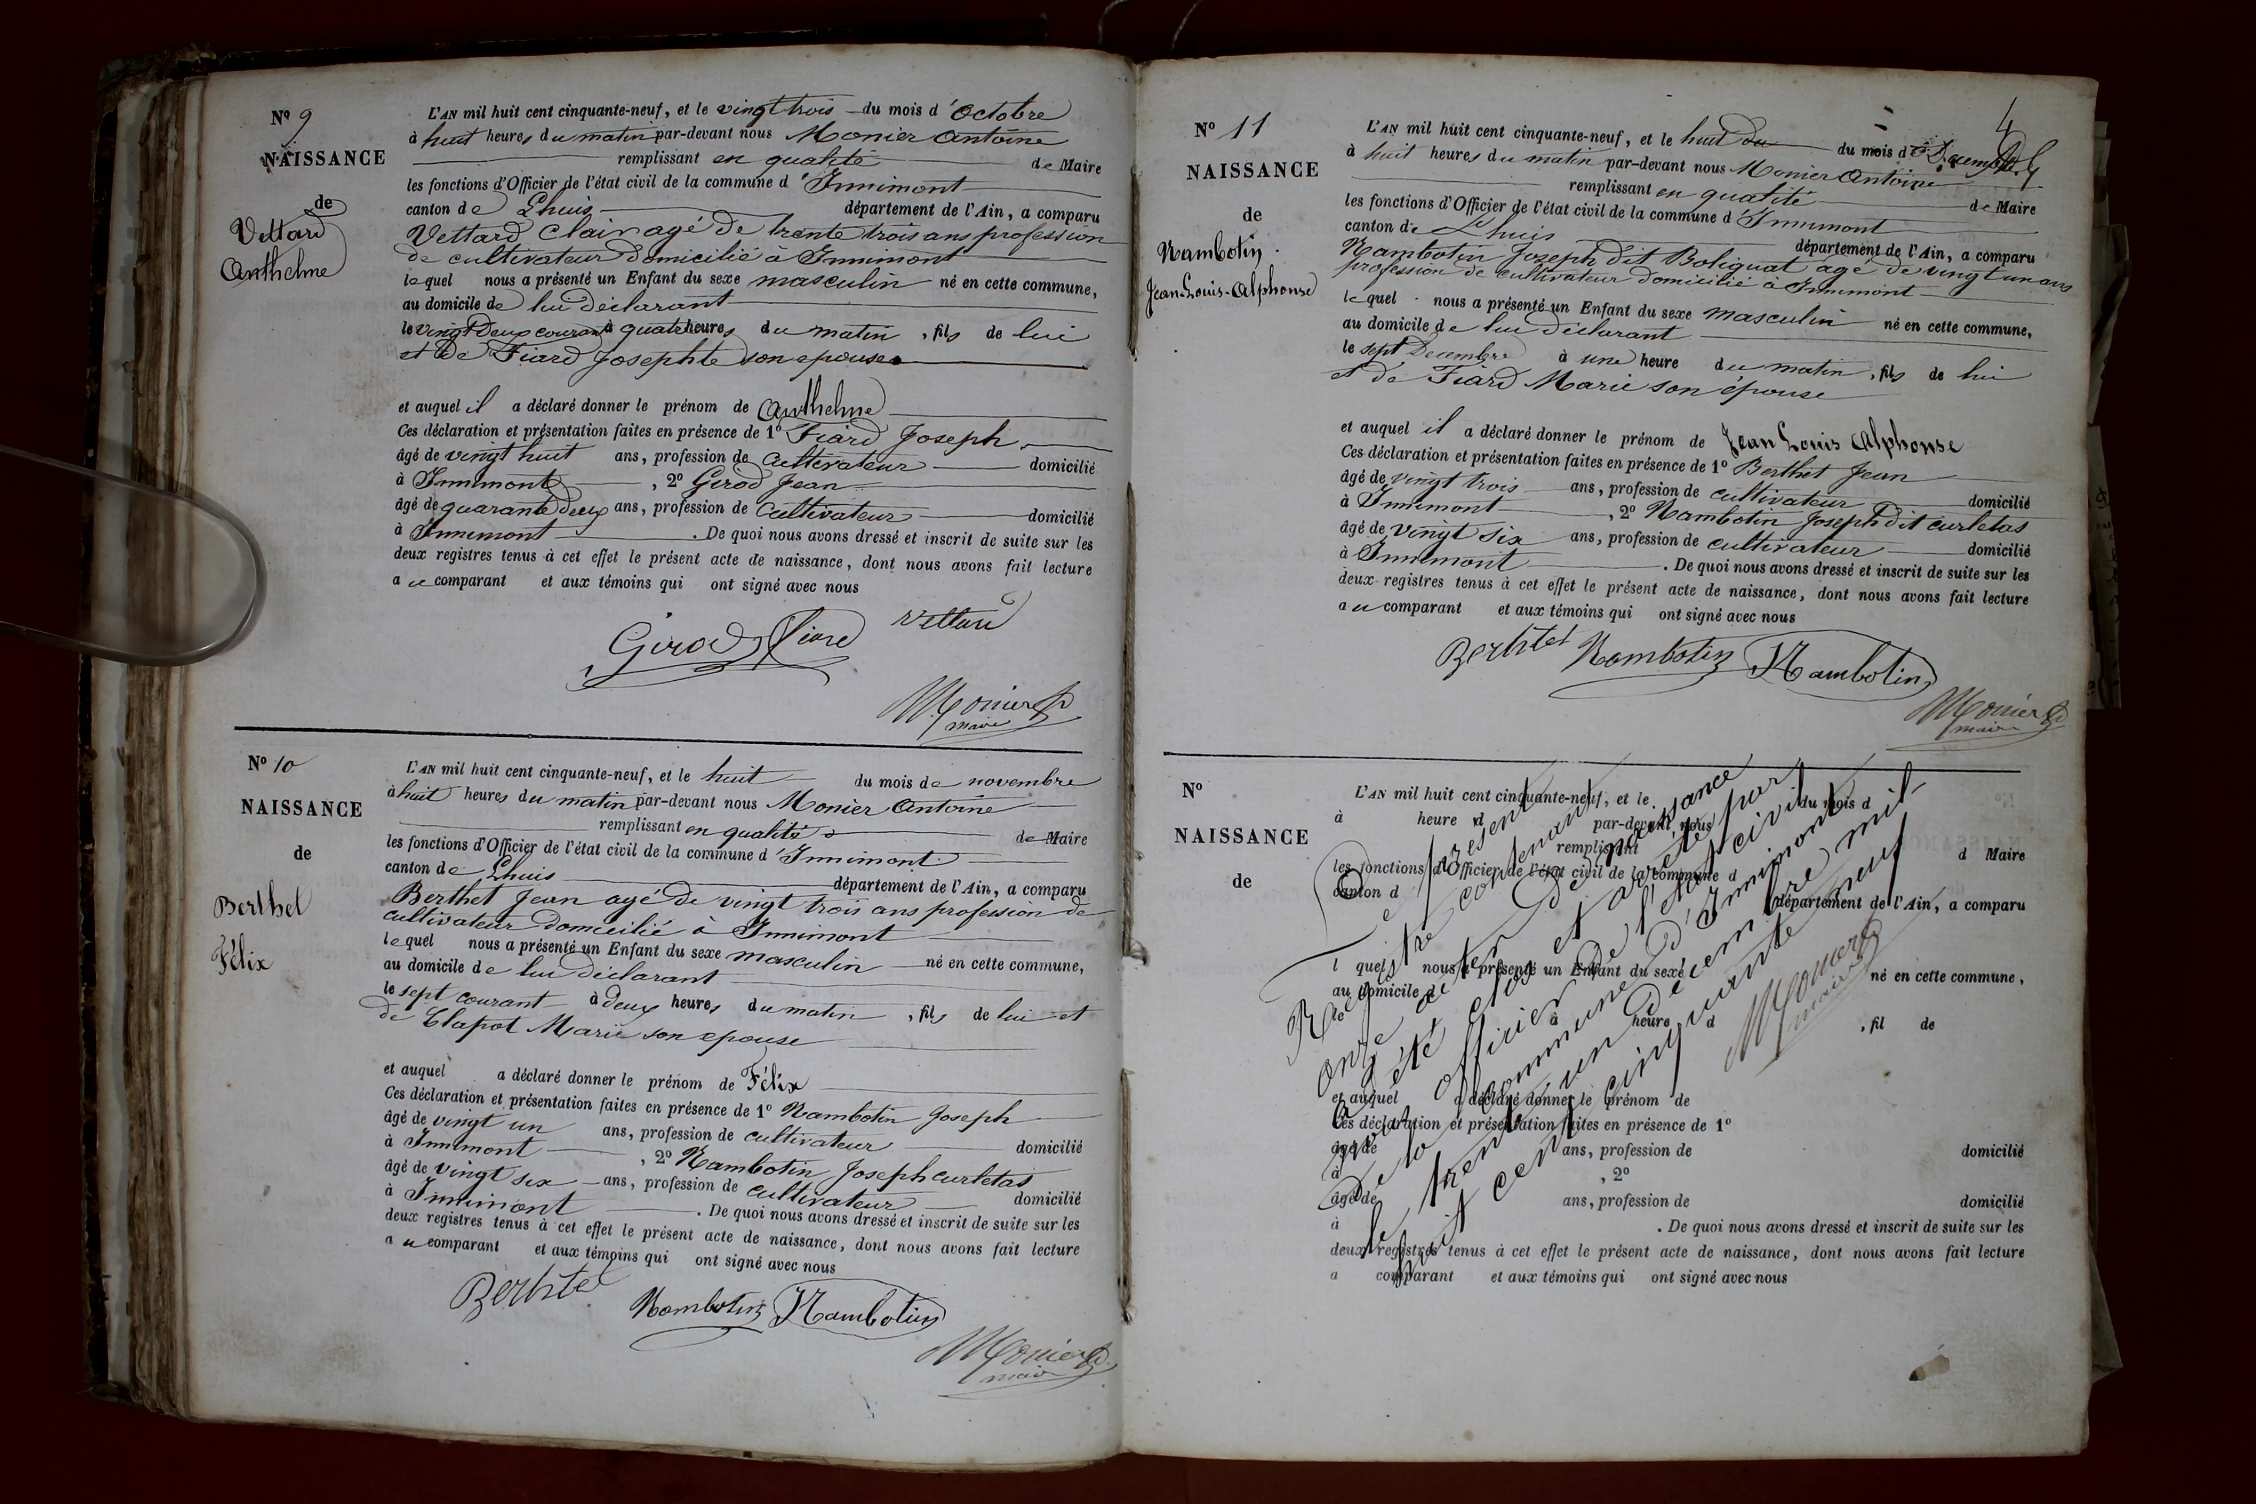 N° 9
NAISSANCE
de
Vettard
Anthelme
L'AN mil huit cent cinquante-neuf, et le vingt trois du mois d'Octobre
à huit heures du matin par-devant nous Monier Antoine
remplissant en qualité de Maire
les fonctions d'Officier de l'état civil de la commune d'Innimont
canton de Lhuis département de l'Ain, a comparu
Vettard Clair agé de trente trois ans profession
de cultivateur domicilié à Innimont
lequel nous a présenté un Enfant du sexe masculin né en cette commune,
au domicile de lui déclarant
le vingt deux courant à quatre heures du matin, fils de lui
et de Fiard Josephte son epouse
et auquel il a déclaré donner le prénom de Anthelme
Ces déclaration et présentation faites en présence de 1° Fiard Joseph
âgé de vingt huit ans, profession de cultivateur domicilié
à Innimont, 2° Girod Jean
âgé de quarante deux ans, profession de cultivateur domicilié
à Innimont. De quoi nous avons dressé et inscrit de suite sur les
deux registres tenus à cet effet le présent acte de naissance, dont nous avons fait lecture
au comparant et aux témoins qui ont signé avec nous
Girod Fiard Vettard
Monier
maire
N° 10
NAISSANCE
de
Berthet
Félix
L'AN mil huit cent cinquante-neuf, et le huit du mois de novembre
à huit heures du matin par-devant nous Monier Antoine
remplissant en qualité de Maire
les fonctions d'Officier de l'état civil de la commune d'Innimont
canton de Lhuis département de l'Ain, a comparu
Berthet Jean agé de vingt trois ans profession de
cultivateur domicilié à Innimont
lequel nous a présenté un Enfant du sexe masculin né en cette commune,
au domicile de lui déclarant
le sept courant à deux heures du matin, fils de lui et
de Clapot Marie son epouse
et auquel a déclaré donner le prénom de Félix
Ces déclaration et présentation faites en présence de 1° Nambotin Joseph
âgé de vingt un ans, profession de cultivateur domicilié
à Innimont, 2° Nambotin Joseph curletas
âgé de vingt six ans, profession de cultivateur domicilié
à Innimont. De quoi nous avons dressé et inscrit de suite sur les
deux registres tenus à cet effet le présent acte de naissance, dont nous avons fait lecture
au comparant et aux témoins qui ont signé avec nous
Berhtet Nambotin Nambotin
Monier
maire
4
N° 11
NAISSANCE
de
Nambotin
Jean-Louis-Alphonse
L'AN mil huit cent cinquante-neuf, et le huit du du mois de Decembre
à huit heures du matin par-devant nous Monier Antoine
remplissant en qualité de Maire
les fonctions d'Officier de l'état civil de la commune d'Innimont
canton de Lhuis département de l'Ain, a comparu
Nambotin Joseph dit Boliquat agé de vingt un ans
profession de cultivateur domicilié à Innimont
lequel nous a présenté un Enfant du sexe masculin né en cette commune,
au domicile de lui déclarant
le sept Decembre à une heure du matin, fils de lui
et de Fiard Marie son épouse
et auquel il a déclaré donner le prénom de Jean Louis Alphonse
Ces déclaration et présentation faites en présence de 1° Berthet Jean
âgé de vingt trois ans, profession de cultivateur domicilié
à Innimont, 2° Nambotin Joseph dit curletas
âgé de vingt six ans, profession de cultivateur domicilié
à Innimont. De quoi nous avons dressé et inscrit de suite sur les
deux registres tenus à cet effet le présent acte de naissance, dont nous avons fait lecture
au comparant et aux témoins qui ont signé avec nous
Berhtet Nambotin Nambotin
Monier
maire
N°
NAISSANCE
de
L'AN mil huit cent cinquante-neuf, et le du mois d
à heure d par-devant nous
remplissant d Maire
les fonctions d'Officier de l'état civil de la commune d
canton d département de l'Ain, a comparu
l quel nous a présenté un Enfant du sexe né en cette commune,
au domicile d
le à heure d, fil de
et auquel a déclaré donner le prénom de
Ces déclaration et présentation faites en présence de 1°
âgé de ans, profession de domicilié
à, 2°
âgé de ans, profession de domicilié
à. De quoi nous avons dressé et inscrit de suite sur les
deux registres tenus à cet effet le présent acte de naissance, dont nous avons fait lecture
a comparant et aux témoins qui ont signé avec nous
Le présent
Registre contenant
onze acter de naissance
a été clos et arrêté par
nous officier de l'état civil
de la commune d'Innimont
le trente un Décembre mil
huit cent cinquante neuf
Monier
maire